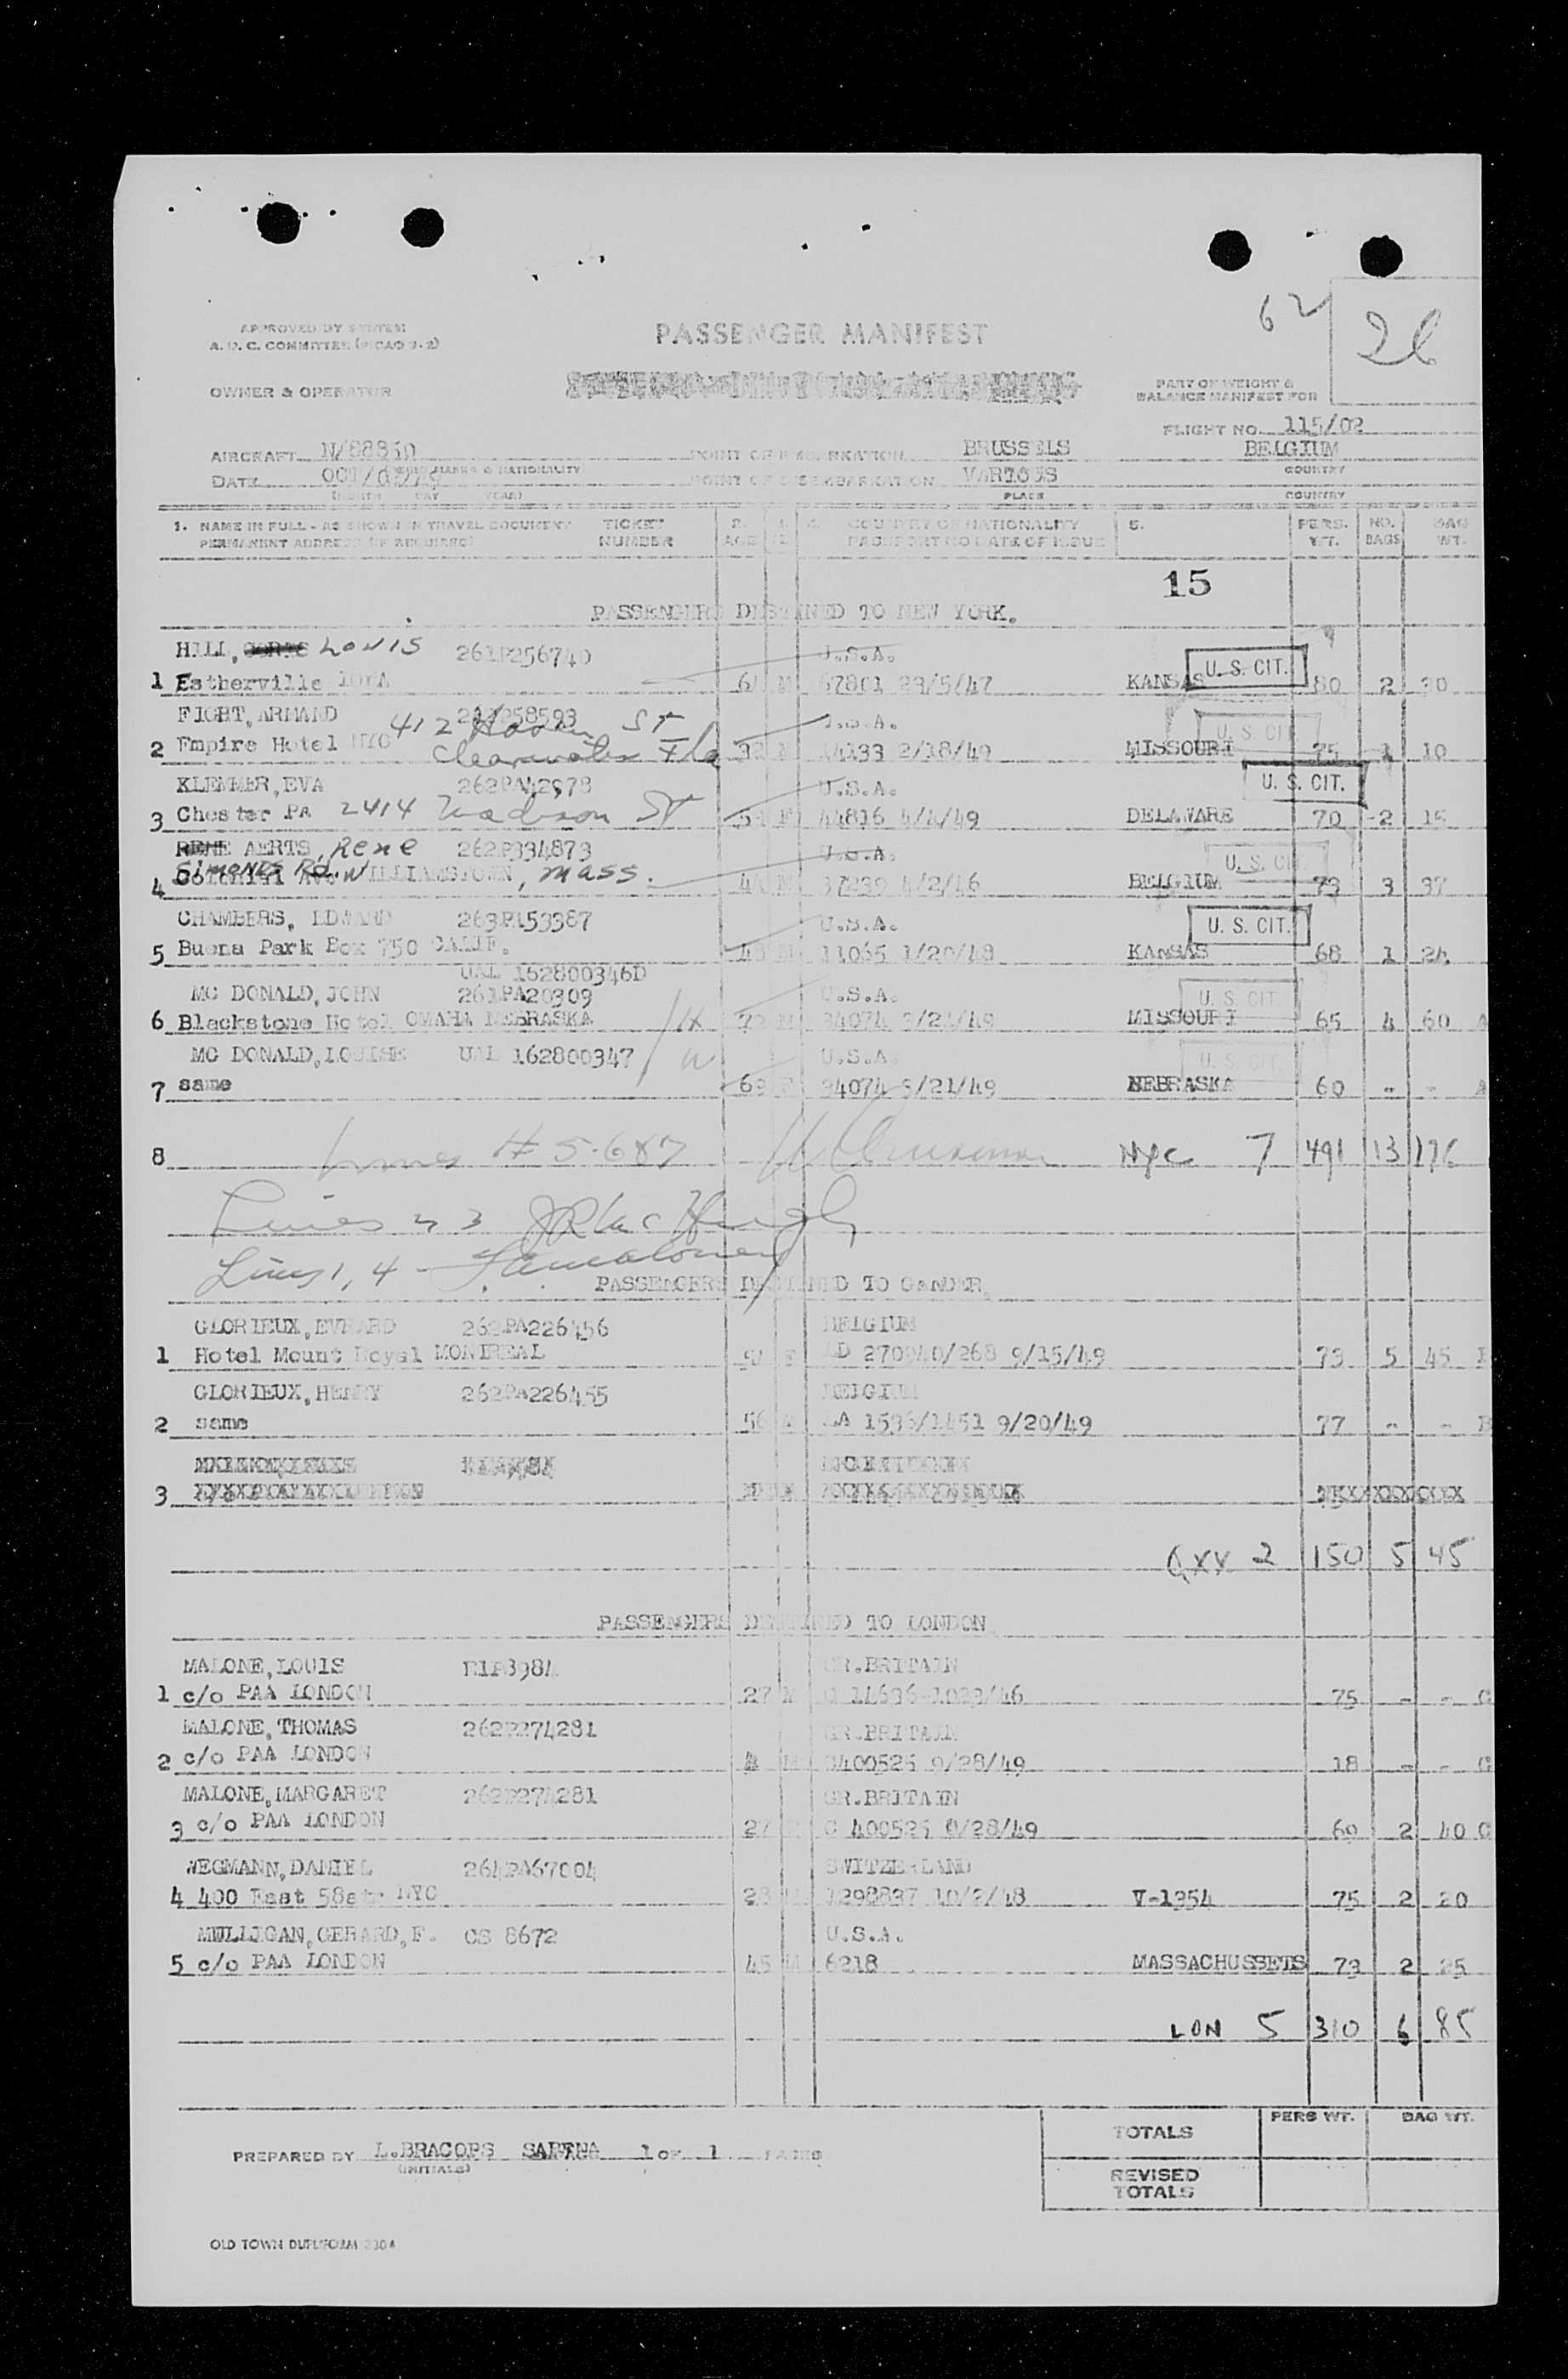 62
26
APPROVED BY SYSTEM
A. D. C. COMMITTEE (PICAO 9-2)
PASSENGER MANIFEST
OWNER & OPERATOR
PART OF WEIGHT &
BALANCE MANIFEST FOR
FLIGHT NO. 115/02
AIRCRAFT N/88830 POINT OF EMBARKATION BRUSSELS BELGIUM
MARKS & NATIONALITY COUNTRY
DATE OCT/ POINT OF DISEMBARKATION VARIOUS
(MONTH DAY YEAR) PLACE COUNTRY
1. NAME IN FULL - AS SHOWN IN TRAVEL DOCUMENT TICKET 2. 3. 4. COUNTRY OF NATIONALITY 5. PERS. NO. BAG
PERMANENT ADDRESS (IF REQUIRED) NUMBER AGE PASSPORT NO DATE OF ISSUE WT. BAGS WT.
15
PASSENGERS DESTINED TO NEW YORK.
HILL, LOUIS 261P256740 U.S.A. U. S. CIT.
1 Estherville IOWA M 67801 23/5/47 KANSAS 80 2 30
FIGHT, ARMAND 412 St U.S.A. U. S. CIT.
2 Empire Hotel NYC Clearwater Fla 32 M 14133 2/18/49 MISSOURI 75 1 10
KLEMMER, EVA 262PA42978 U.S.A. U. S. CIT.
3 Chester PA 2414 Madison St F 44816 4/4/49 DELAWARE 70 2 15
RENE AERTS, Rene 262P334873 U.S.A. U. S. CIT.
Simonds Rd.
4 Colonial Ave WILLIAMSTOWN, Mass. 44 M 37239 4/2/46 BELGIUM 73 3 37
CHAMBERS, EDWARD 263P153387 U.S.A. U. S. CIT.
5 Buena Park Box 750 CALIF. 48 M 11065 1/20/48 KANSAS 68 1 24
UAL 162800346D
MC DONALD, JOHN 261PA20309 U.S.A. U. S. CIT.
6 Blackstone Hotel OMAHA NEBRASKA M 34074 3/21/49 MISSOURI 65 4 60 A
MC DONALD, LOUISE UAL 162800347 U.S.A. U. S. CIT.
7 same 69 F 34074 3/21/49 NEBRASKA 60 - - A
8 # 5-6&7 NYC 7 491 13 176
Lines 2 3
Lines 1, 4
PASSENGERS DESTINED TO GANDER.
GLORIEUX, EVRARD 262PA226456 BELGIUM
1 Hotel Mount Royal MONTREAL F 9/15/49 73 5 45 B
GLORIEUX, HENRY 262PA226455 BELGIUM
2 same 56 M LA 9/20/49 77 - - B
3
QXX 2 150 5 45
PASSENGERS DESTINED TO LONDON
MALONE, LOUIS R1P3984 GR.BRITAIN
1 c/o PAA LONDON 27 M 75 - - C
MALONE, THOMAS 262P274281 GR.BRITAIN
2 c/o PAA LONDON 4 M C400525 9/28/49 18 - - C
MALONE, MARGARET 262P274281 GR.BRITAIN
3 c/o PAA LONDON 27 C 400525 9/28/49 69 2 40 C
WEGMANN, DANIEL 264PA67004 SWITZERLAND
4 400 East 58str NYC 28 M 1298837 10/2/48 V-1354 75 2 20
MULLIGAN, GERARD, F. CS 8672 U.S.A.
5 c/o PAA LONDON 45 M 6218 MASSACHUSSETS 73 2 25
LON 5 310 6 85
PERS WT. BAG WT.
TOTALS
PREPARED BY L.BRACOPS SABENA 1 OF 1 PAGES
(INITIALS)
REVISED
TOTALS
OLD TOWN DUPLIFORM 230A